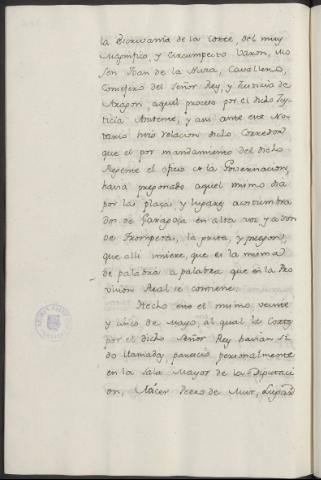 la Escrivanía de la Corte del muy
Magnifico, y Circumpecto Varon, Mo
sen Joan de la Nuza, Cavallero,
Consejero del Señor Rey, y Justicia de
Aragon, aquel proceso por el dicho Jus
ticia Anteme, y asi ante este No
tario hizo relacion dicho Corredor
que el por mandamiento del dicho
Regente el oficio de la Governacion,
havia pregonado aquel mismo dia
por la plaza, y lugares acostumbra
dos de Zaragoza en alta voz, y a son
de Trompeta, la prorª, y pregon,
que alli inxiere, que es la misma
de palabra a palabra que en la Pro
vision Real se contiene.
Hecho esto el mismo veinte
y uno de Mayo, al qual la Corte
por el dicho Señor Rey havian si
do llamada, parecio personalmente
en la sala Mayor de la Diputaci
on, Mícer Pedro de Mur, Lugar